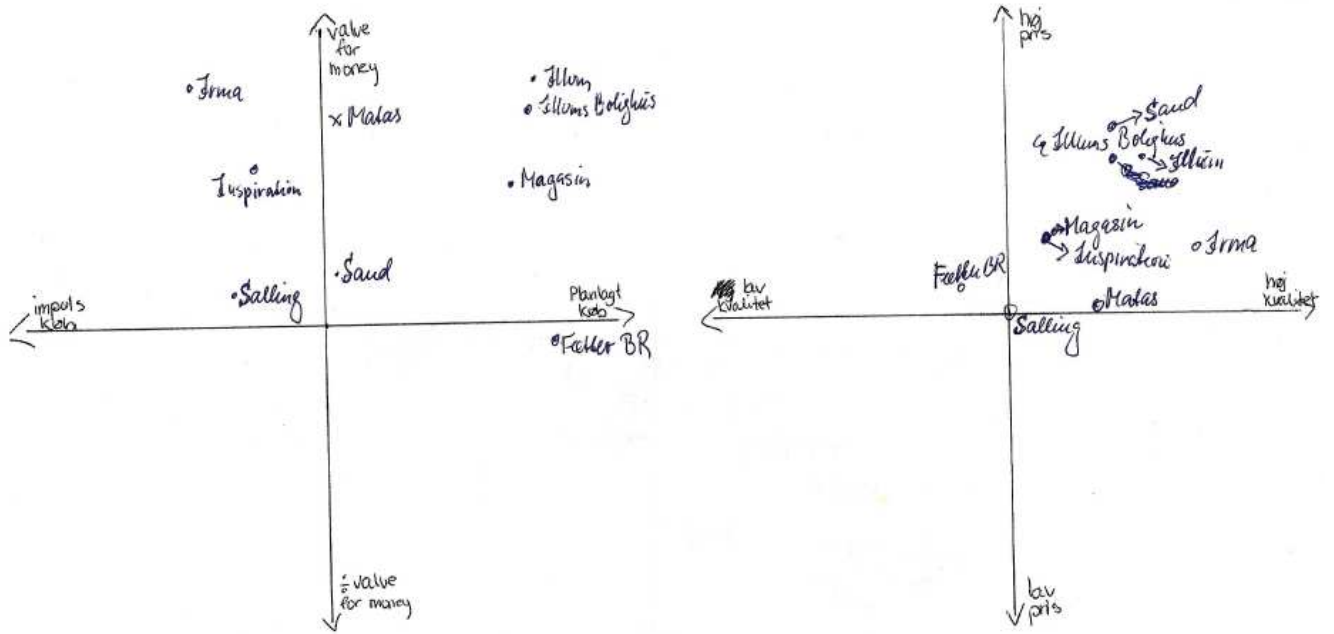 value
for
money
Irma
Matas
Illum
Illums Bolighus
Inspiration
Magasin
Sand
Salling
impuls
køb
Planlagt
køb
Fætter BR
÷ value
for money
høj
pris
Sand
Illums Bolighus
Illum
Magasin
Inspiration
Irma
Fætter BR
lav
kvalitet
Matas
høj
kvalitet
Salling
lav
pris